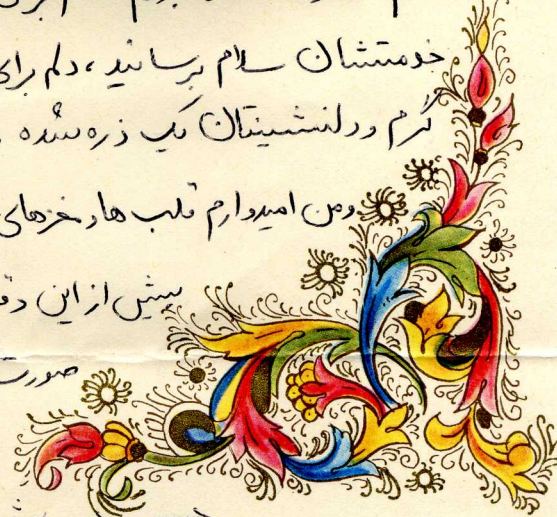 خدمتشان سلام برسانید، دلم برای
گرم و دلنشینتان یک ذره شده
ومن امیدوارم قلب ها و مغزهای
بیش از این
صورت